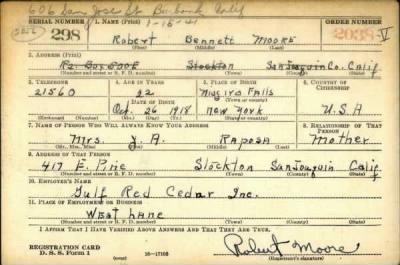 606 San Jose St Burbank Calif
SERIAL NUMBER 1. NAME (Print) 1-15-41 ORDER NUMBER
298 Robert Bennett MOORE 2038 V
(First) (Middle) (Last)
2. ADDRESS (Print)
Stockton San Joaquin Co. Calif
(Number and street or R. F. D. number) (Town) (County) (State)
3. TELEPHONE 4. AGE IN YEARS 5. PLACE OF BIRTH 6. COUNTRY OF CITIZENSHIP
21560 22 Niagira Falls
(Town or county)
DATE OF BIRTH
Oct. 26 1918 New York U.S.A
(Mo.) (Day) (Yr.) (State or country)
7. NAME OF PERSON WHO WILL ALWAYS KNOW YOUR ADDRESS 8. RELATIONSHIP OF THAT PERSON
Mrs. A. Raposa Mother
(Mr., Mrs., Miss) (First) (Middle) (Last)
9. ADDRESS OF THAT PERSON
417 E. Pine Stockton San Joaquin Calif
(Number and street or R. F. D. number) (Town) (County) (State)
10. EMPLOYER'S NAME
Gulf Red Cedar Inc.
11. PLACE OF EMPLOYMENT OR BUSINESS
West Lane
(Number and street or R. F. D. number) (Town) (County) (State)
I AFFIRM THAT I HAVE VERIFIED ABOVE ANSWERS AND THAT THEY ARE TRUE.
REGISTRATION CARD
D. S. S. Form 1 16-17105 Robert Moore
(Registrant's signature)